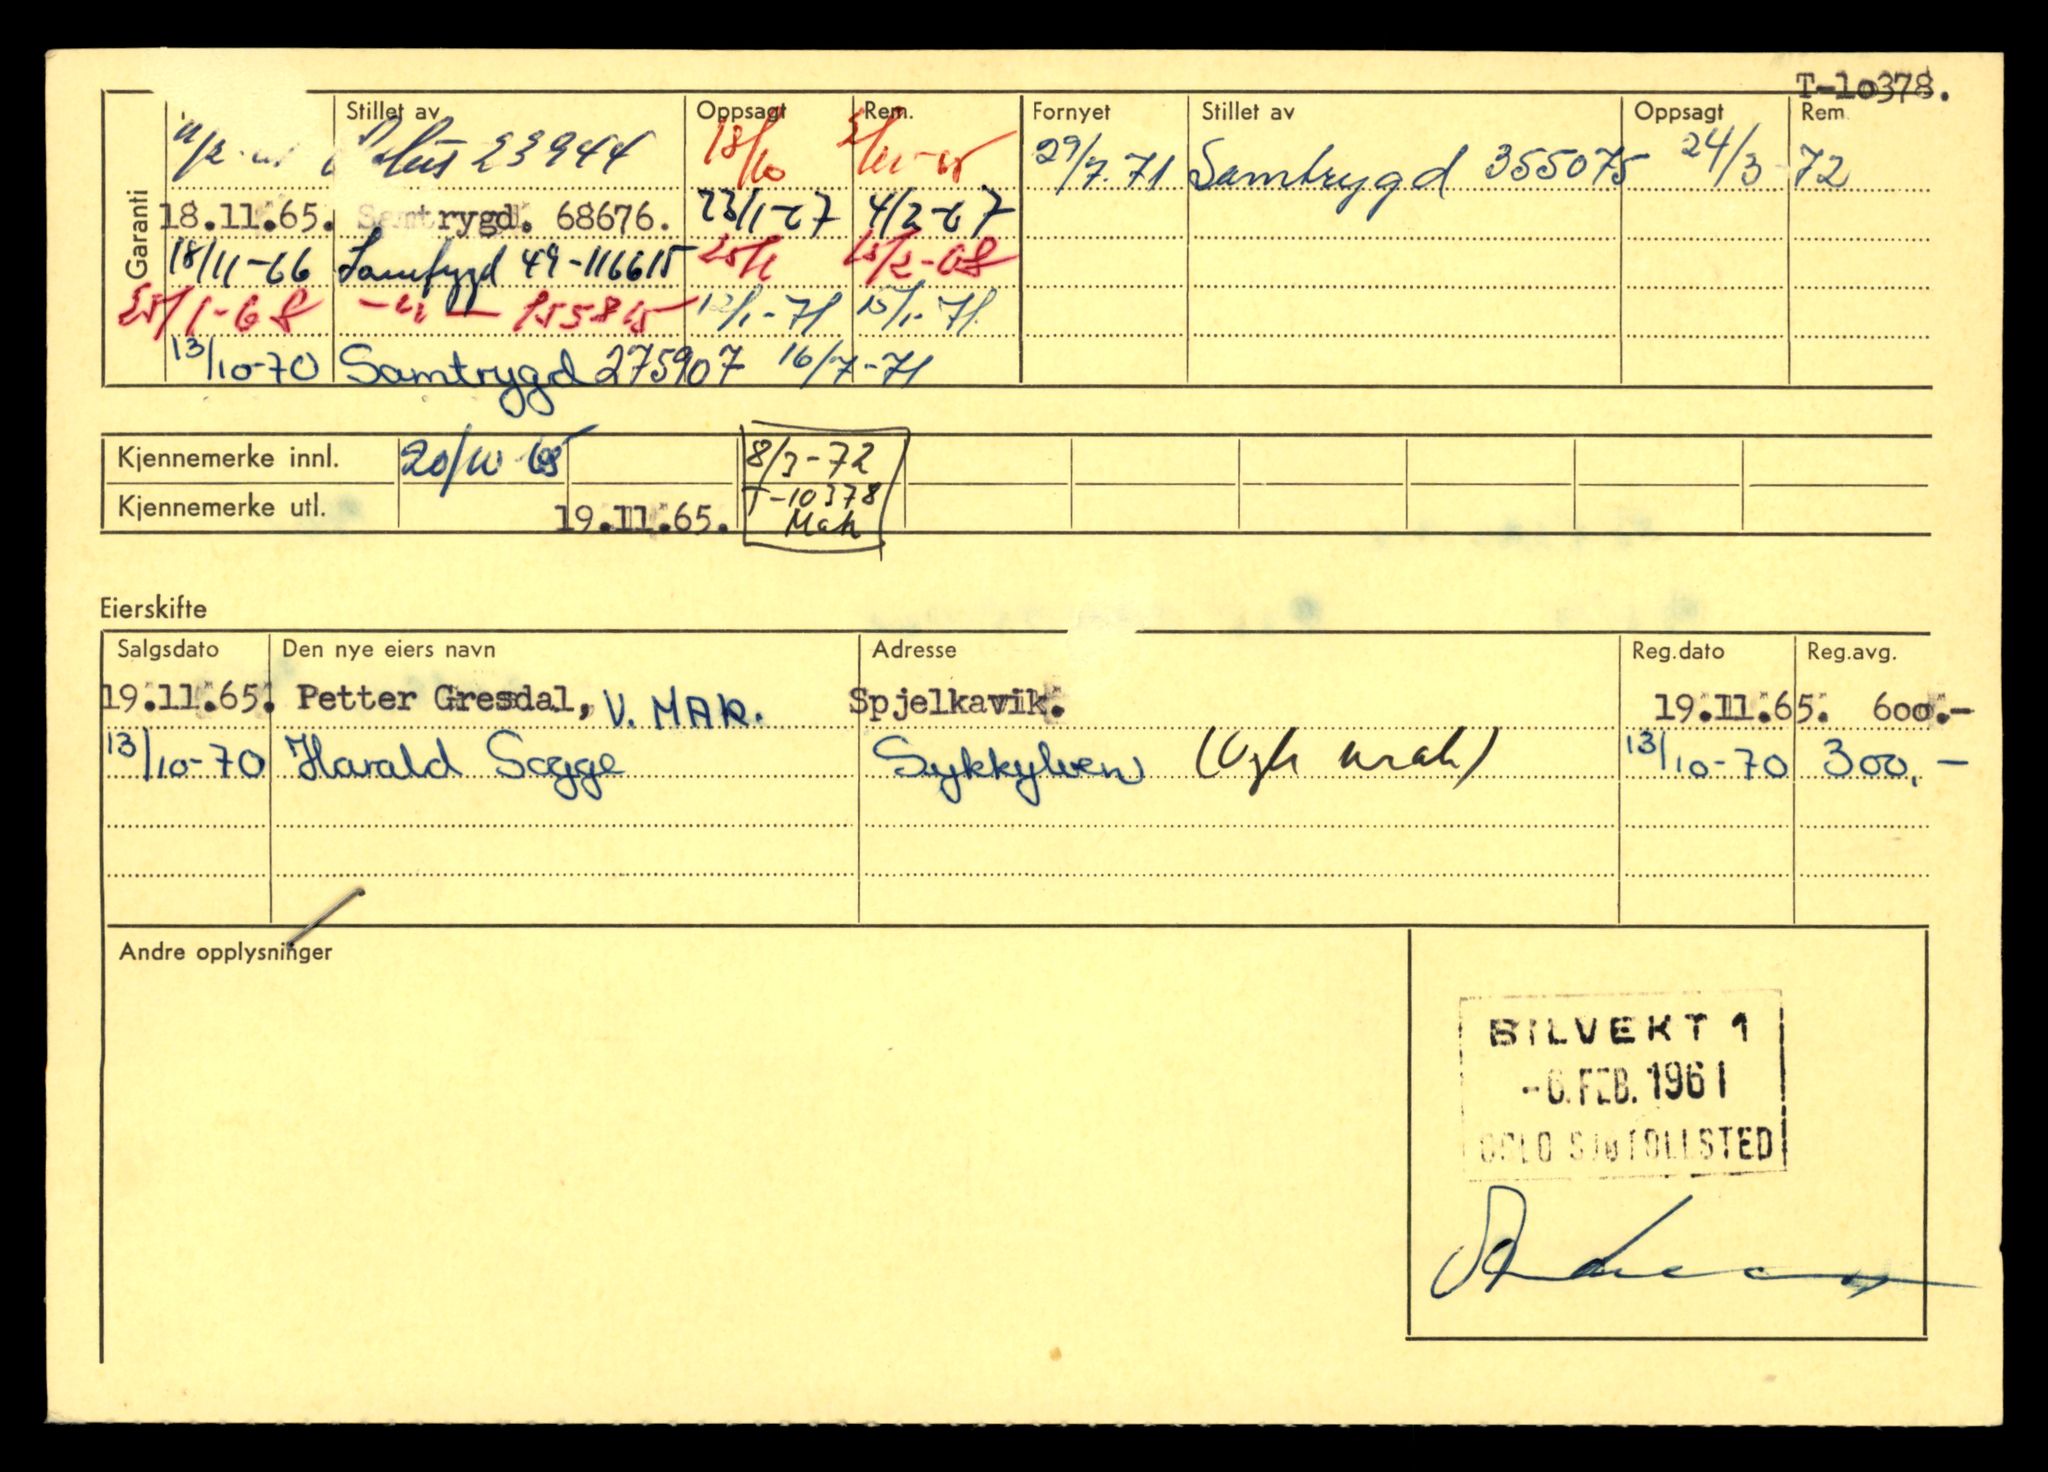 T-10378.
Garanti
Stillet av Oppsagt Rem. Fornyet Stillet av Oppsagt Rem
23944 18/10 29/7.71 Samtrygd 355075 24/3-72
18.11.65. Samtrygd. 68676. 23/1-67 4/2-67
18/11-66 Samtrygd 49-116615 25/1 15/2-68
25/1-68 -"- 155815 12/1-71 15/1-71
13/10-70 Samtrygd 275907 16/7-71
Kjennemerke innl. 20/10-65 8/3-72
Kjennemerke utl. 19.11.65. T-10378
Mak
Eierskifte
Salgsdato Den nye eiers navn Adresse Reg.dato Reg.avg.
19.11.65. Petter Gresdal, V. MAK. Spjelkavik. 19.11.65. 600.-
13/10-70 Harald Sogge Sykkylven 13/10-70 300,-
Andre opplysninger
BILVEKT 1
-6. FEB. 1961
OSLO SJØTOLLSTED